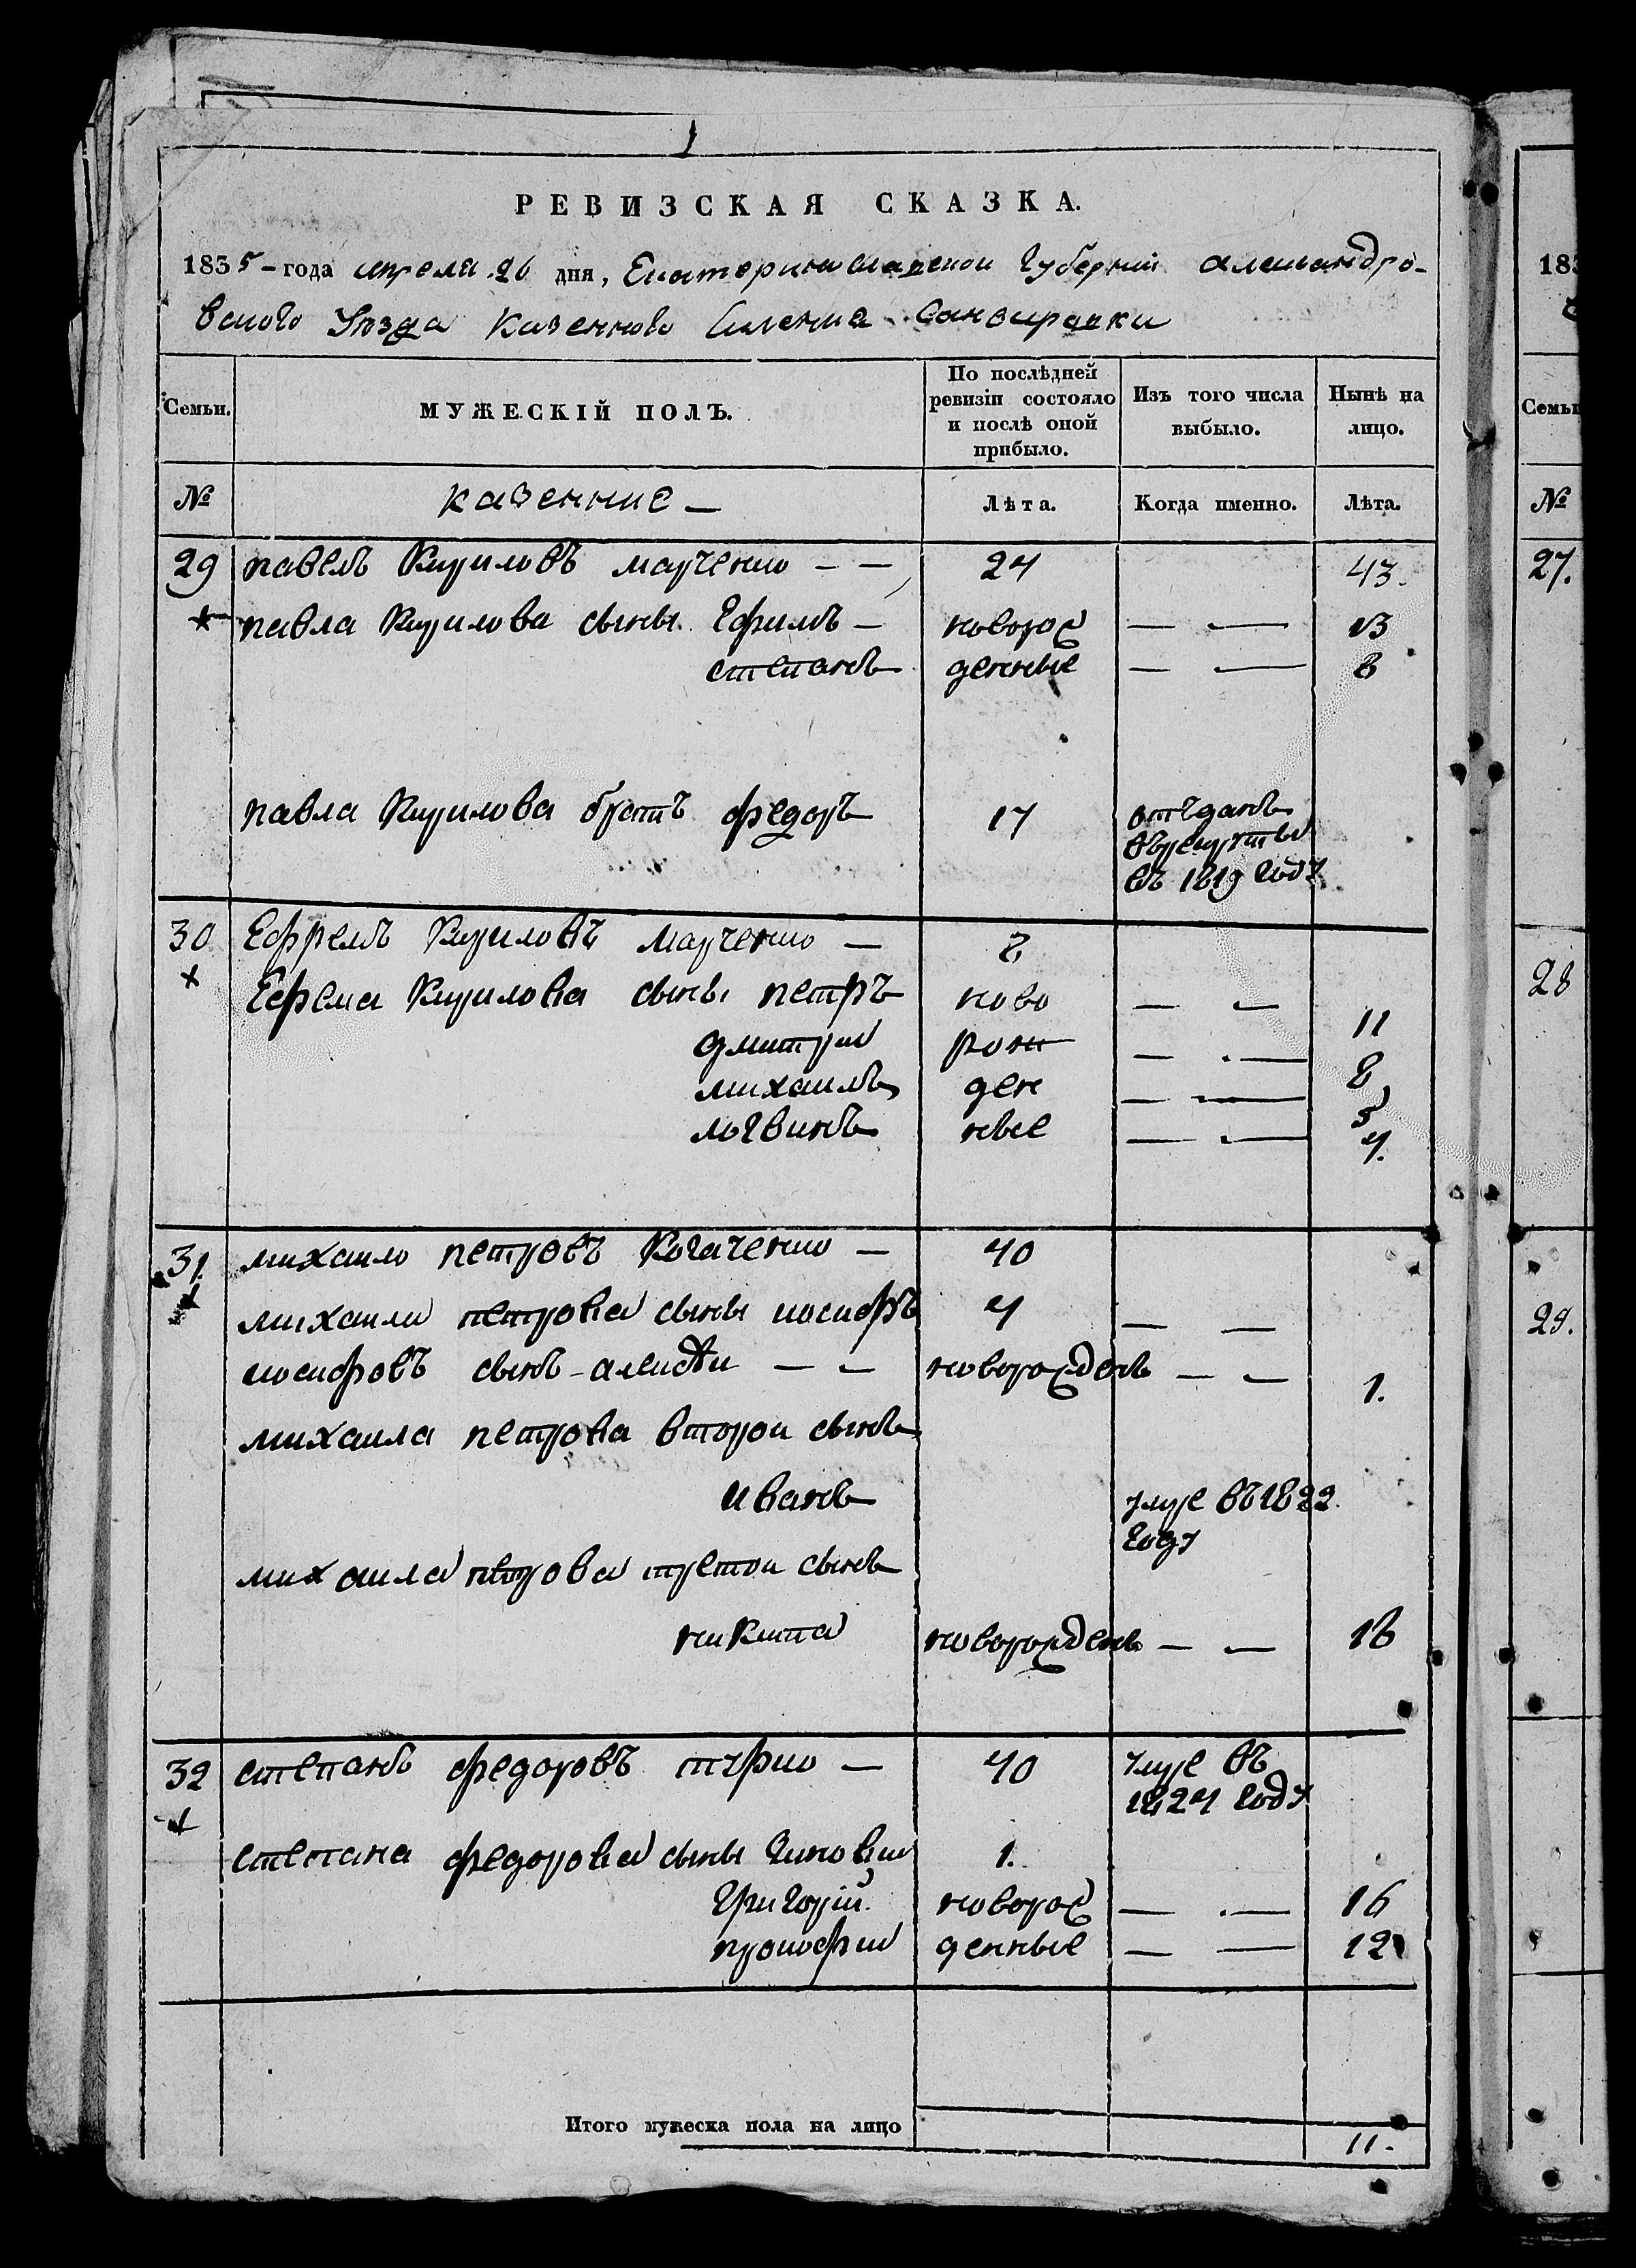 РЕВИЗСКАЯ СКАЗКА.
1835 – года апреля 26 дня, Екатеринославской Губернии Александро-
вского Уезда Казенного Селения
Семьи. МУЖЕСКІЙ ПОЛЪ. По послѣдней ревизіи состояло и послѣ оной прибыло. Изъ того числа выбыло. Нынѣ на лицо.
№ казенние — Лѣта. Когда именно. Лѣта.
29 павелъ Кириловъ марченко — — 24 43.
павла Кирилова сыны Ефимъ — новорож — — 13
степанъ денные — — 8
павла Кирилова братъ федоръ 17 отъданъ
въ рекруты
въ 1819 году
30 Ефремъ Кириловъ Марченко — 2
Ефрема Кирилова сыны петръ ново — — 11
дмитрии рож — — 8
михаилъ ден — — 5
логвинъ ные — — 4.
31. михаило петровъ Когаченко — 40
михаила петрова сыны иосифъ 4 — —
иосифовъ сынъ алексѣи — — новорожденъ — — 1.
михаила петрова второи сынъ
иванъ умре въ 1822
году
михаила петрова третои сынъ
никита новорожденъ — — 18
32 степанъ федоровъ — 40 умре въ
1824 году
степана федорова сыны Зиновии 1.
Григорій. новорож — — 16
прокофии денные — — 12
Итого мужеска пола на лицо 11.
183
Семьи
№
27.
28
29.